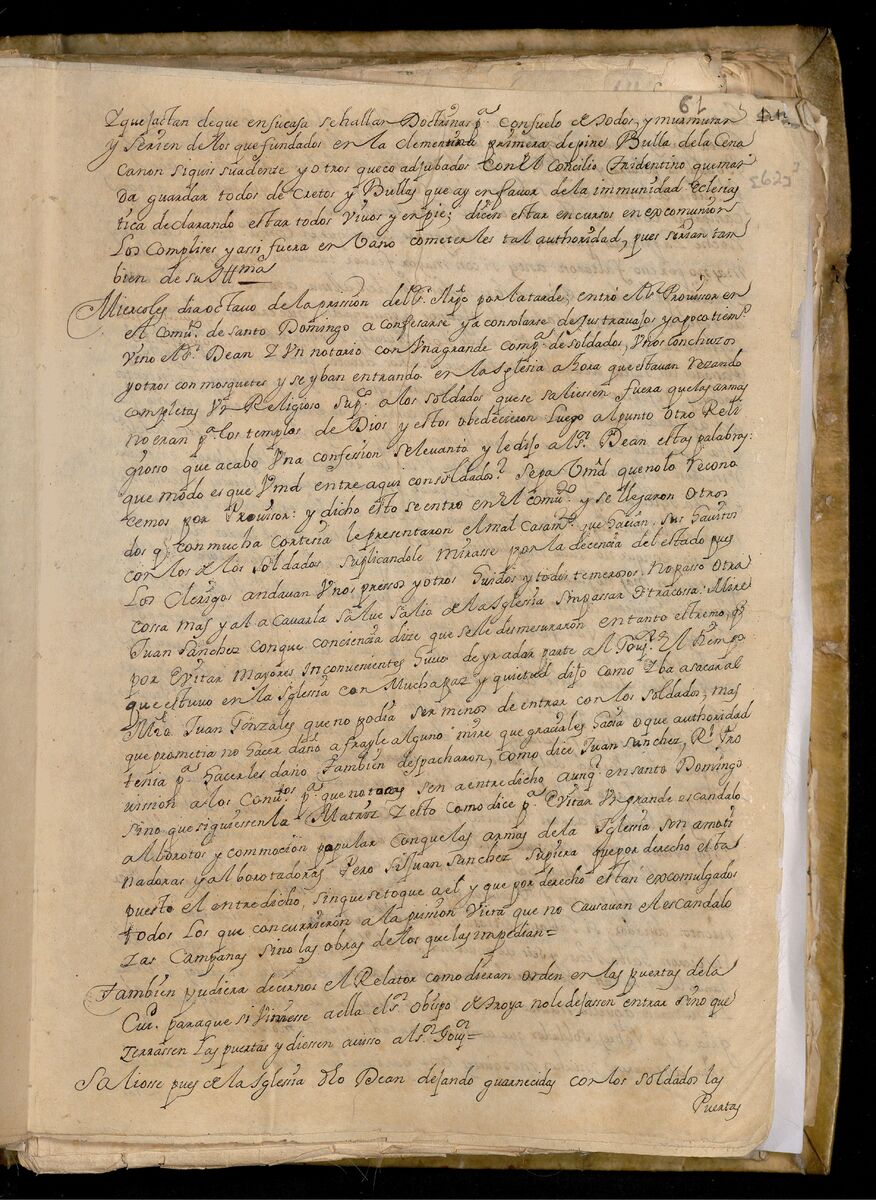 61
Y que jactan de que en su casa se hallan Doctrinas pa. consuelo de todos, y murmurar
y se rien de los que fundados en la clementina primera de pine Bulla de la Cena
Canon siquis suadente y otros que co adjubados con el Concilio Tridentino que man
da guardar todos decretos y Bullas que ay en favor de la immunidad Eclesias
tica declarando estar todos vivos y en pie; dicen estar en cursos en excomunion
Los Complices y assi fuera en vano cometerles tal authoridad, pues serian tam
bien de su Illma
Miercoles dia octavo de la prission del Sr. Arpo por la tarde, entró el Sr. Provissor en
el Comto. de santo Domingo a confesarse y a consolarse de sus travajos y a poco tiempo
vino el Sr. Dean y Vn notario con Vna grande compa. de soldados, Vnos con chuzos
y otros con mosquetes y se yban entrando en la Iglesia a hora que estavan rezando
completas Vn Religioso supco. a los soldados que se saliessen fuera que las armas
no eran pa. los templos de Dios y estos obedecieron luego al punto otro Reli
gioso que acabo Vna confession se levantó y le dijo al Sr. Dean estas palabras:
que modo es que Vmd entre aqui con soldados? sepa Vmd que no lo recono
cemos por Provissor: y dicho esto se entro en el comto. y se llegaron otros
dos q. con mucha cortesia le presentaron el mal casamto. que hacian sus havitos
con los de los soldados suplicandole mirasse por la decencia del estado pues
Los Clerigos andavan Vnos pressos y otros huidos y todos temerosos. No passo otra
cossa mas y al a cavar la salve salio de la Iglesia sin passar otra cossa: Mire
Juan Sanchez con que conciencia dize que se le desmesuraron en tanto estremo, q.
por evitar mayores inconvenientes huvo de yr a dar parte al Govor. El tiempo
que estuvo en la Iglesia con Mucha paz y quietud dijo como Yba a sacar al
Mro. Juan Gonzales que no podia ser menos de entrar con los soldados, mas
que prometia no hacer daño a frayle alguno mire que graciales hacia o que authoridad
tenia pa. hacerles daño tambien despacharon, como dice Juan Sanchez, Rl. Pro
vission a los Comtos. pa. que no tocassen a entredicho aunq. en santo Domingo
sino que siguiessen la Matriz y esto como dice pa. evitar Vn grande escandalo
alborotos y commocion popular conque las armas de la Iglesia son amoti
nadoras y alborotadoras Pero si Juan Sanchez supiera que por derecho esta
puesto el entredicho, sin que se toque a el y que por derecho estan excomulgados
todos Los que concurrieron a la prission viera que no causavan el escandalo
Las Campanas sino las obras de los que las impedian=
Tambien pudiera decirnos el Relator como dieran orden en las puertas de la
Ciud. para que si viniesse a ella el Sr. Obispo de Troya no le dejassen entrar sino que
zerrassen las puertas y diessen avisso al Sr. Govor=
Saliosse pues de la Iglesia dho Dean dejando guarnecidas con los soldados las
Puertas